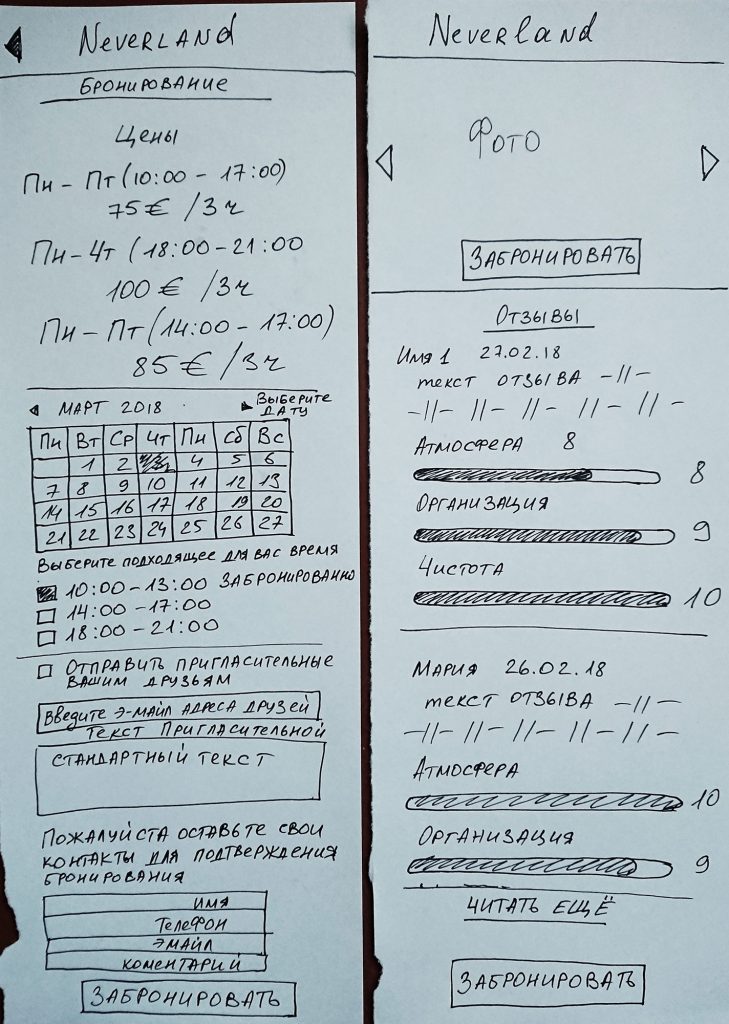 Neverland
Бронирование
Цены
Пн - Пт (10:00 - 17:00)
75 € / 3 ч
Пн - Чт (18:00 - 21:00
100 € / 3 ч
Пн - Пт (14:00 - 17:00)
85 € / 3 ч
МАРТ 2018
Выберите
дату
Пн Вт Ср Чт Пн Сб Вс
1 2 3 4 5 6
7 8 9 10 11 12 13
14 15 16 17 18 19 20
21 22 23 24 25 26 27
Выберите подходящее для вас время
10:00 - 13:00 забронированно
14:00 - 17:00
18:00 - 21:00
Отправить пригласительные
вашим друзьям
Введите э-майл адреса друзей
Текст пригласительной
Стандартный текст
Пожалуйста оставьте свои
контакты для подтверждения
бронирования
Имя
Телефон
Эмайл
Коментарий
ЗАБРОНИРОВАТЬ
Neverland
Фото
ЗАБРОНИРОВАТЬ
Отзывы
Имя 1 27.02.18
текст отзыва -//-
-//- //- //- //- //-
Атмосфера 8
8
Организация
9
Чистота
10
Мария 26.02.18
текст отзыва -//-
-//- //- //- //- //-
Атмосфера
10
Организация
9
Читать ещё
ЗАБРОНИРОВАТЬ